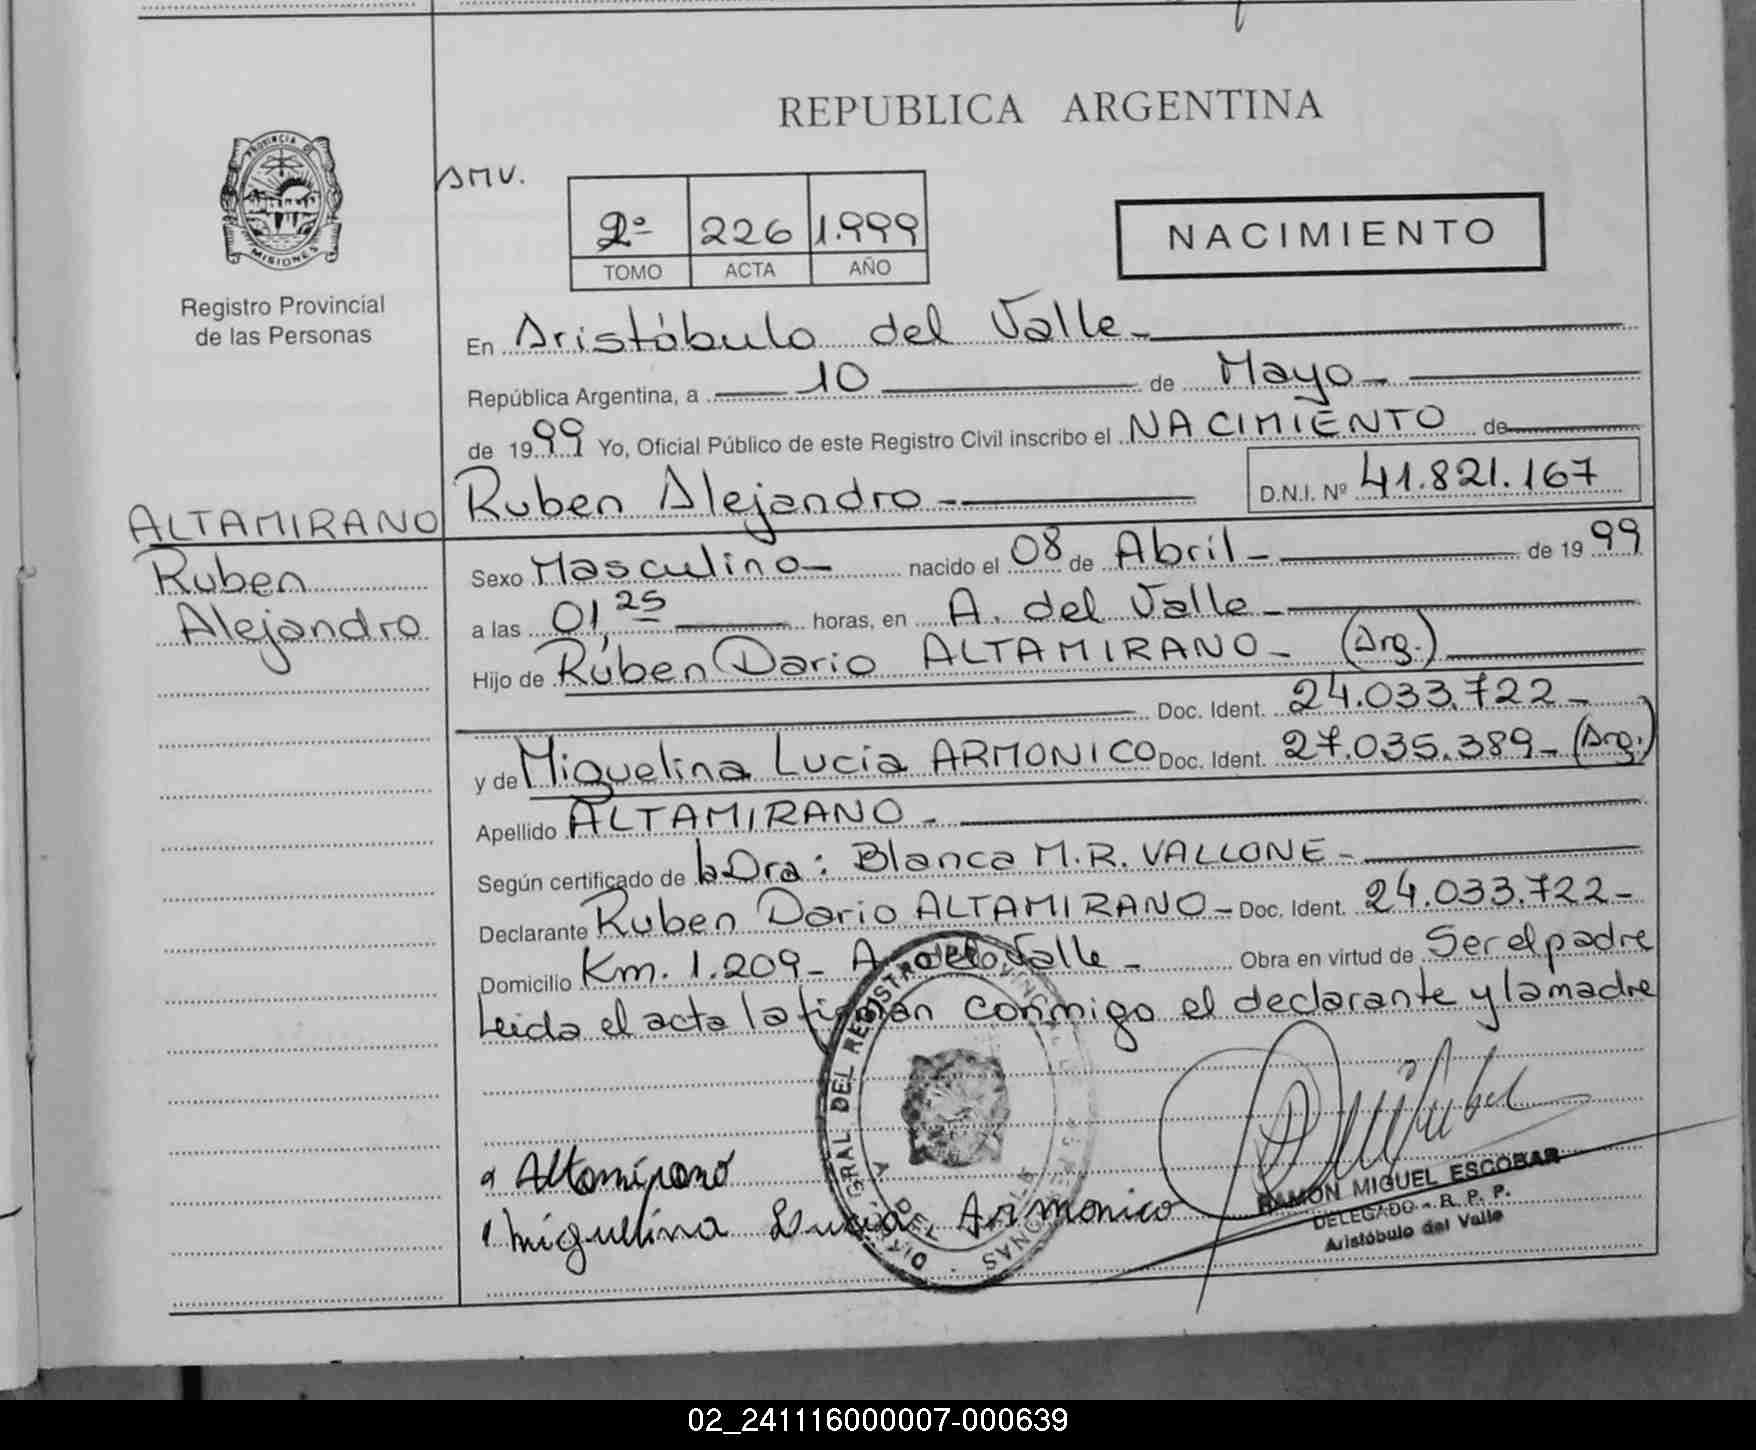 REPUBLICA ARGENTINA
PROVINCIA DE
MISIONES
Registro Provincial
de las Personas
2º 226 1.999
TOMO ACTA AÑO
NACIMIENTO
En Aristóbulo del Valle-
República Argentina, a 10 de Mayo-
de 1999 Yo, Oficial Público de este Registro Civil inscribo el NACIMIENTO de
Ruben Alejandro - D.N.I. Nº 41.821.167
ALTAMIRANO
Ruben
Alejandro
Sexo Masculino- nacido el 08 de Abril- de 1999
a las 01,25 horas, en A. del Valle-
Hijo de Rúben Dario ALTAMIRANO- (Arg.)
Doc. Ident. 24.033.722-
y de Miguelina Lucia ARMONICO Doc. Ident. 27.035.389- (Arg.)
Apellido ALTAMIRANO-
Según certificado de la Dra: Blanca M.R. VALLONE-
Declarante Ruben Dario ALTAMIRANO- Doc. Ident. 24.033.722-
Domicilio Km. 1.209- A. del Valle- Obra en virtud de Ser el padre
Leida el acta la firman conmigo el declarante y la madre
Altamirano
Miguelina Lucia Armonico
RAMON MIGUEL ESCOBAR
DELEGADO - R. P. P.
Aristóbulo del Valle
02_241116000007-000639